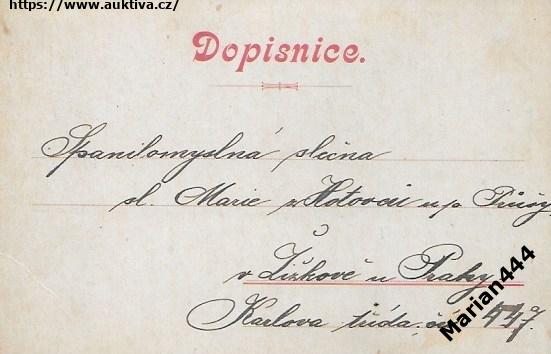 https://www.auktiva.cz/
Dopisnice.
Spanilomyslná slečna
sl. Marie z Hotovců u p.
v Žižkově u Prahy
Karlova třída čís 447.
Marian444